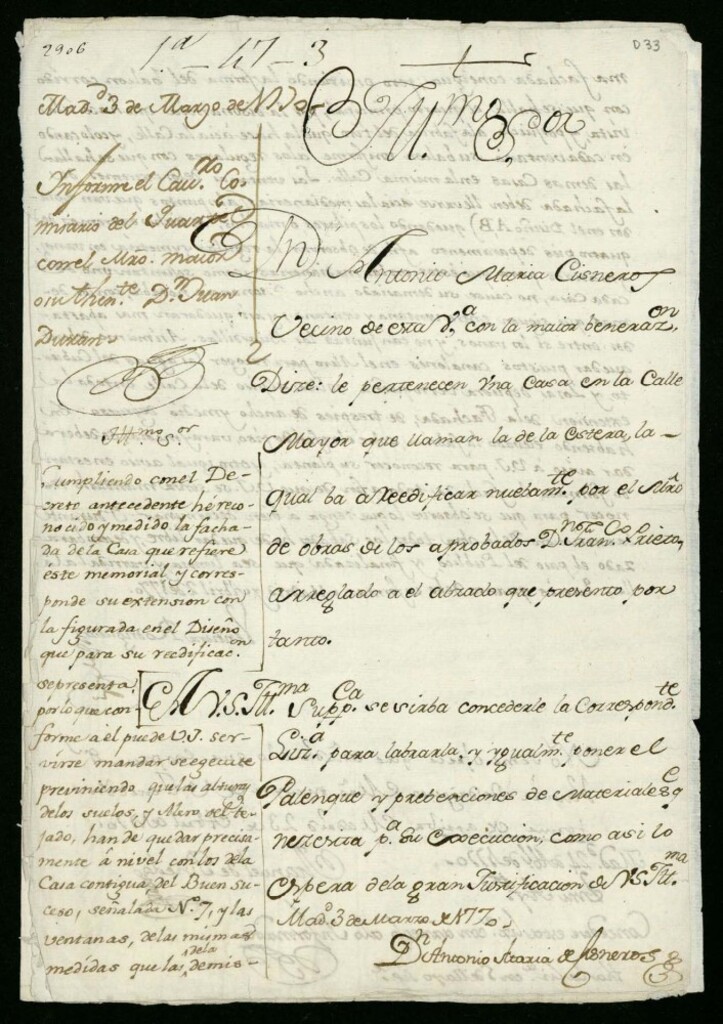 2906
1ª - 47 - 3
D 33
Mad.d 3 de Marzo de 1770
Informe el Cav.ro Co-
misario del Quartel
con el Mro. maior
o su thin.te D.n Juan
Duran
Ill.mo S.or
Cumpliendo con el De-
creto antecedente hé reco-
nocido y medido la facha-
da de la Casa que refiere
éste memorial, y corres-
ponde su extension con
la figurada en el Diseño
que para su reedificac.on
se presenta:
por lo que con-
forme a el puede V.I. ser-
virse mandar se egecute
previniendo que las alturas
de los suelos, y Alero del te-
jado, han de quedar precisa-
mente à nivel con los de la
Casa contigua, del Buen su-
ceso, señalada N.º 7, y las
ventanas, de las mismas
medidas que las de la demis-
Ill.mo S.or
D.n Antonio Maria Cisneros
Vecino de esta V.a con la maior beneraz.on
Dize: le pertenecen vna Casa en la Calle
Mayor que llaman la de la Estera, la-
qual ba a Reedificar nuebam.te por el Mrô
de obras de los aprobados D.n Fran.co Prieto,
arreglado a el alzado que presento por
tanto.
A V.S. Ill.ma Sup.ca se sirba concederle la Correspond.te
Liz.a para labrarla, y ygualm.te poner el
Palenque y prebenciones de Materiales q.e
nezesita p.a su execucion, como asi lo
espera de la gran Justificacion de V.S. Ill.ma
Mad.d 3 de Marzo de 1770
D.n Antonio Maria de Cisneros